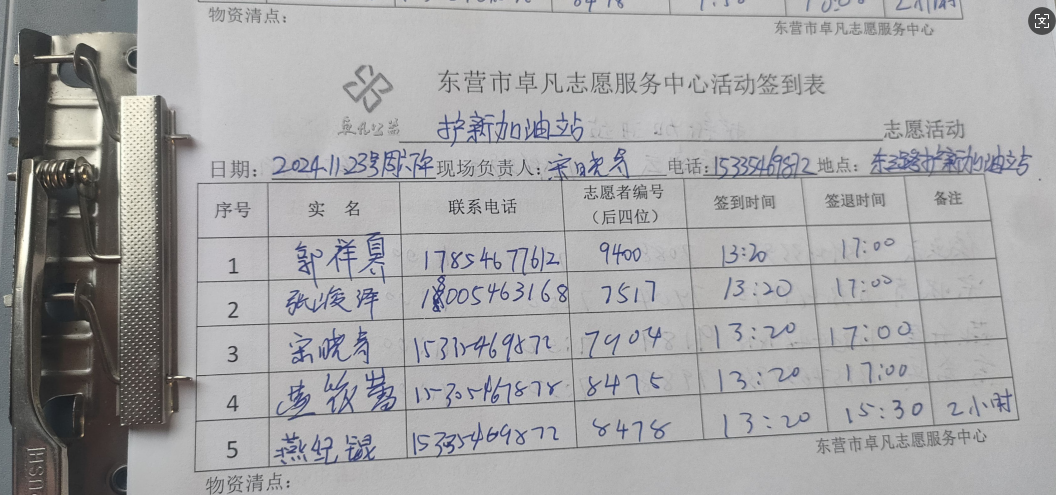 物资清点：
东营市卓凡志愿服务中心
东营市卓凡志愿服务中心活动签到表
卓凡公益
护新加油站 志愿活动
日期：2024.11.23 现场负责人：宋晓亭 电话：15335469872 地点：护新加油站
序号 实 名 联系电话 志愿者编号（后四位） 签到时间 签退时间 备注
1 郭祥夏 17854677612 9400 13:20 17:00
2 张峻泽 18005463168 7517 13:20 17:00
3 宋晓亭 15335469872 7904 13:20 17:00
4 8475 13:20 17:00
5 燕纪锟 15335469872 8478 13:20 15:30 2小时
东营市卓凡志愿服务中心
物资清点：